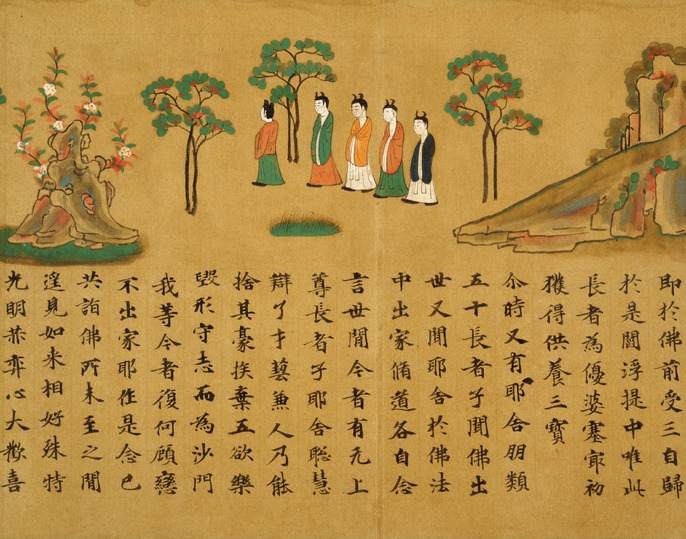 即於佛前受三自歸
於是閻浮提中唯此
長者為優婆塞冣初
獲得供養三寶
尒時又有耶舍朋類
五十長者子聞佛出
世又聞耶舍於佛法
中出家脩道各自念
言世間今者有无上
尊長者子耶舍聡慧
辯了才藝兼人乃能
捨其豪族棄五欲樂
毀形守志而為沙門
我等今者復何顧戀
不出家耶作是念已
共詣佛所未至之間
遥見如来相好殊特
光明赫弈心大歡喜